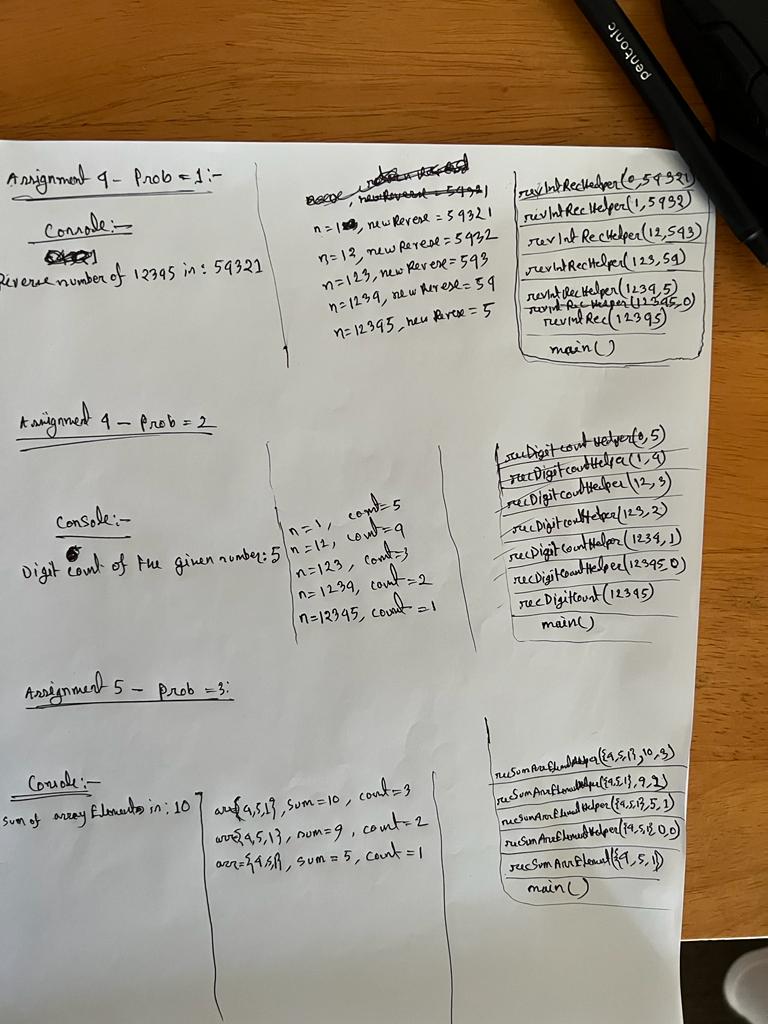 pentonic
Assignment 4 - Prob = 1:-
Console:-
Reverse number of 12345 is: 54321
n=1, newReverse = 54321
n=12, newReverse = 5432
n=123, newReverse = 543
n=1234, newReverse = 54
n=12345, newReverse = 5
revIntRecHelper(0,54321)
revIntRecHelper(1,5432)
revIntRecHelper(12,543)
revIntRecHelper(123,54)
revIntRecHelper(1234,5)
revIntRecHelper(12345,0)
revIntRec(12345)
main()
Assignment 4 - Prob = 2
Console:-
Digit Count of the given number: 5
n=1, count=5
n=12, count=4
n=123, count=3
n=1234, count=2
n=12345, count=1
recDigitCountHelper(0,5)
recDigitCountHelper(1,4)
recDigitCountHelper(12,3)
recDigitCountHelper(123,2)
recDigitCountHelper(1234,1)
recDigitCountHelper(12345,0)
recDigitCount(12345)
main()
Assignment 5 - Prob = 3:
Console:-
Sum of array Elements is: 10
arr{4,5,1}, sum=10, count=3
arr={4,5,1}, sum=9, count=2
arr={4,5,1}, sum=5, count=1
recSumArrElementHelper({4,5,1},10,3)
recSumArrElementHelper({4,5,1},9,2)
recSumArrElementHelper({4,5,1},5,1)
recSumArrElementHelper({4,5,1},0,0)
recSumArrElement({4,5,1})
main()